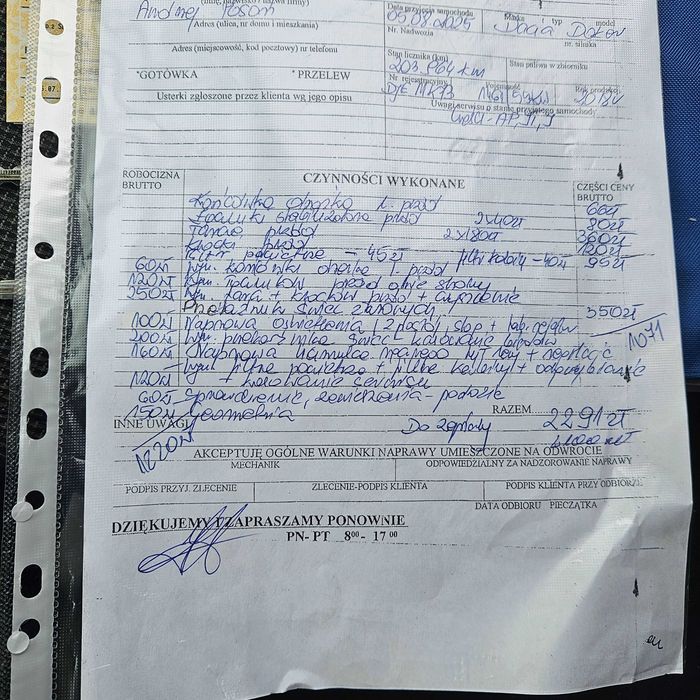 Andrzej
Adres (ulica, nr domu i mieszkania)
Adres (miejscowość, kod pocztowy) nr telefonu
*GOTÓWKA * PRZELEW
Usterki zgłoszone przez klienta wg jego opisu
Data przyjęcia samochodu
05.08.2025
Marka i typ model
Dacia Doker
Nr. Nadwozia
nr. silnika
Stan licznika (km)
203.864 km
Stan paliwa w zbiorniku
Nr rejestracyjny
Pojemność
Rok produkcji
2018r
Uwagi serwisu o stanie przyjętego samochodu
ROBOCIZNA BRUTTO
CZYNNOŚCI WYKONANE
CZĘŚCI CENY BRUTTO
Końcówka drążka l. przód 66zł
Łączniki stabilizatora przód 2x40zł 80zł
Tarcze przód 2x180zł 360zł
Klocki przód 180zł
Filtr powietrza - 45zł filtr kabiny - 50zł 95zł
60zł wym. końcówki drążka l. przód
120zł wym. łączników przód obie strony
250zł wym. tarcz + klocków przód + czyszczenie
Przekaźnik świec żarowych 350zł
100zł Naprawa oświetlenia
200zł wym. przekaźnika świec + kasowanie błędów
160zł Naprawa hamulca ręcznego + regulacja
wym. filtra powietrza + filtra kabiny + odpowietrzanie
120zł + kasowanie serwisu
60zł Sprawdzenie zawieszenia - podwozie
150zł Geometria
1071
INNE UWAGI
1220zł
Do zapłaty
RAZEM 2291zł
AKCEPTUJĘ OGÓLNE WARUNKI NAPRAWY UMIESZCZONE NA ODWROCIE
MECHANIK ODPOWIEDZIALNY ZA NADZOROWANIE NAPRAWY
PODPIS PRZYJ. ZLECENIE ZLECENIE-PODPIS KLIENTA PODPIS KLIENTA PRZY ODBIORZE
DATA ODBIORU PIECZĄTKA
DZIĘKUJEMY I ZAPRASZAMY PONOWNIE
PN- PT 8⁰⁰- 17 ⁰⁰